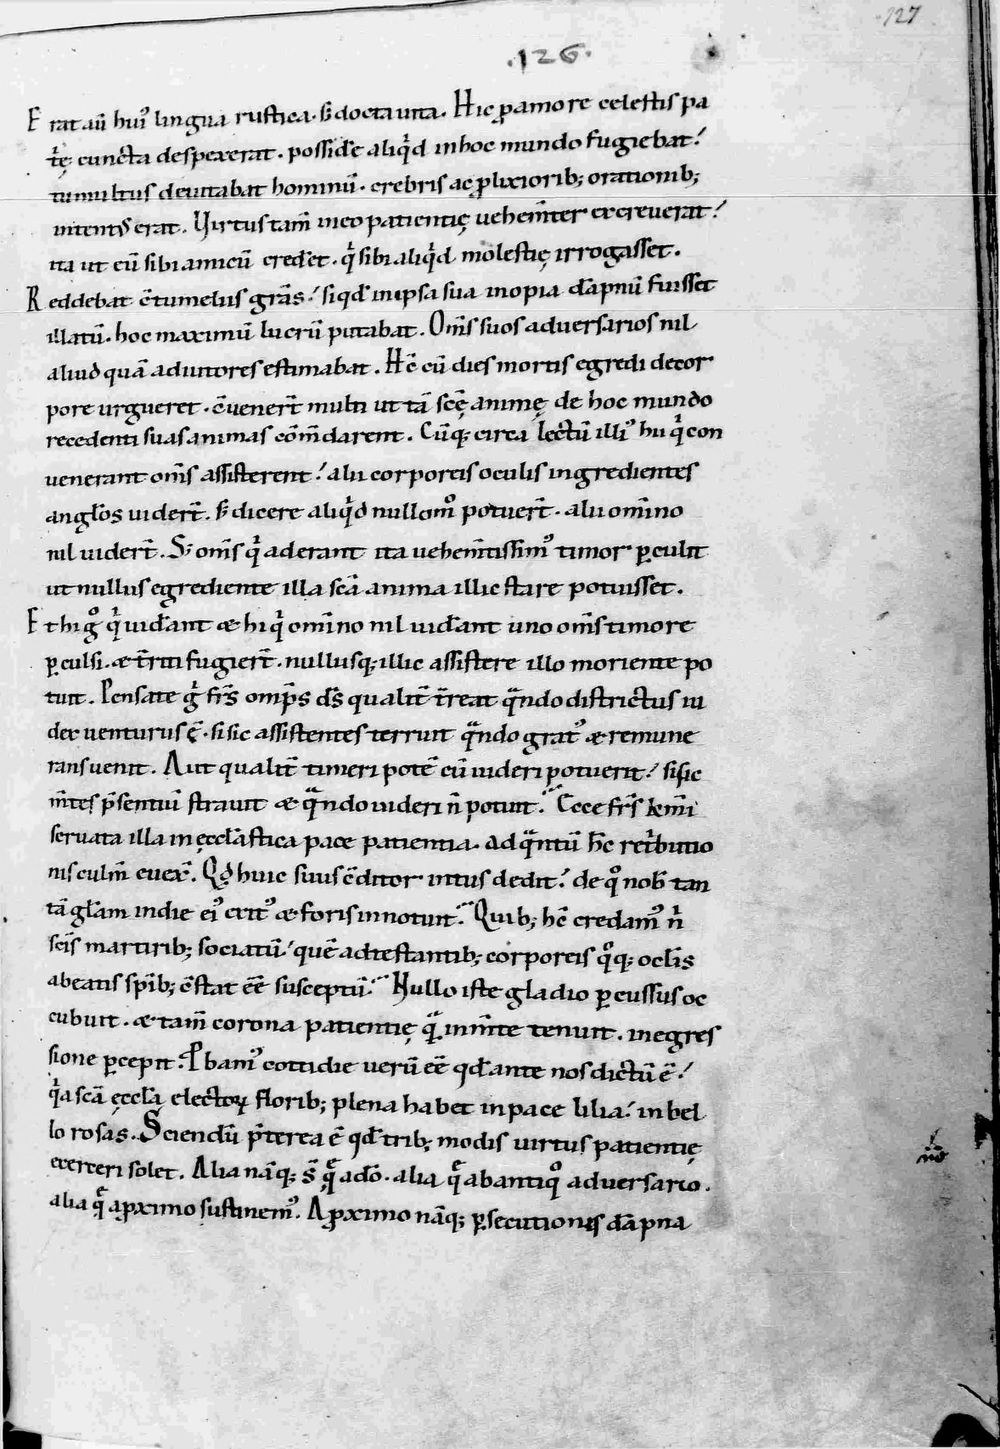 127
.126.
Erat aū hui᷒ lingua rustica. s̄ docta uita. Hic p amore celestis pa
tr̄ę cuncta despexerat. possidc̄e aliq̇d in hoc mundo fugiebat!
tumultus deuitabat hominū. crebris ac plixiorib; orationib;
intent᷒ erat. Virtus tam̄ in eo patientię uehem̄ter excreuerat!
ita ut eū sibi amicū cred̄et. q̇ sibi aliq̇d molestię irrogasset.
Reddebat c̄tumeliis grās! si qd̄ in ipsa sua inopia dāpnū fuisset
illatū. hoc maximū lucrū putabat. Om̄s suos aduersarios nil
aliud quā adiutores estimabat. Hc̄ cū dies mortis egredi de cor
pore urgueret. c̄venert̄ multi ut tā scę̄ animę de hoc mundo
recedenti suas animas cōm̄darent. Cūq; circa lectū illi᷒ hi q̇ con
uenerant om̄s assisterent! alii corporeis oculis ingredientes
angl̄os uidert̄. s̄ dicere aliq̇d nullom̊ potuert̄. alii om̄ino
nil uidert̄. S; om̄s q̇ aderant ita uehem̄tissim᷒ timor p̱culit
ut nullus egrediente illa scā anima illic stare potuisset.
Et hi g̊ q̇ uid̄ant & hi q̇ om̄ino nil uid̄ant uno om̄s timore
p̱culsi. & t̄rriti fugiert̄. nullusq; illic assistere illo moriente po
tuit. Pensate g̊ frs̄ omps̄ ds̄ qualit̄ t̄reat q̄ndo districtus iu
dex uenturus ę̄. si sic assistentes terruit q̄ndo grat᷒ & remune
rans uenit. Aut qualit̄ timeri potē cū uideri potuerit! si sic
m̄tes p̄sentiū strauit & q̄ndo uideri n̄ potuit. Ecce frs̄ kmi
seruata illa in ęccl̄astica pace patientia. ad q̄ntū hc̄ ret̄butio
nis culm̄ euex̄. Qd̄ huic suus c̄ditor intus dedit! de q̊ nob̄ tan
tā gl̄am in die ei᷒ exit᷒ & foris innotuit. Quib; hc̄ credam᷒ n̄
scīs martirib; sociatū! quē adtestantib; corporeis q̊q; ocl̄is
a beatis spīb; c̄stat ēē susceptū. Nullo iste gladio p̱cussus oc
cubuit. & tam̄ corona patientię q̄ in m̄te tenuit. in egres
sione p̱cepit. Pbam᷒ cottidie uerū ēē qd̄ ante nos dictū ē!
q̇a scā ęccl̄a electoꝝ florib; plena habet in pace lilia! in bel
lo rosas. Sciendū p̄terea ē qd̄ trib; modis uirtus patientię
exerceri solet. Alia nāq; s̄ q̄ a dō. alia q̄ ab antiq̊ aduersario.
alia q̄ a pximo sustinem᷒. A pximo nāq; p̱secutionis dāpna